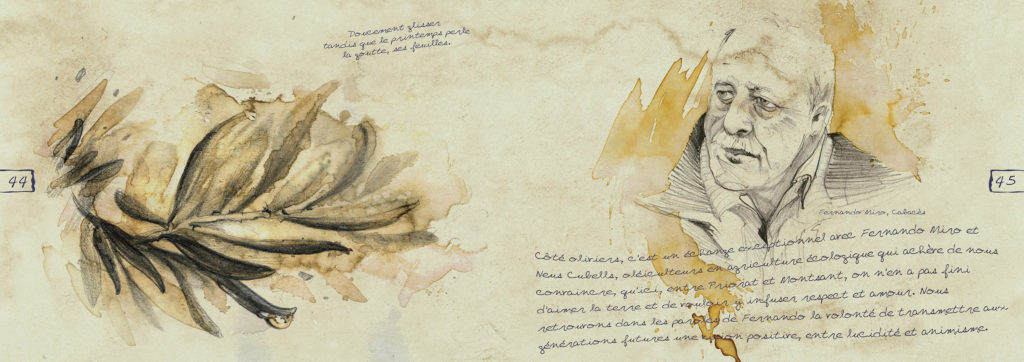 Doucement glisser
tandis que le printemps perle
la goutte, ses feuilles.
44
45
Fernando Miro, Cabacès
Côté oliviers, c'est un échange exceptionnel avec Fernando Miro et
Neus Cubells, oléiculteurs en agriculture écologique qui achève de nous
convaincre, qu'ici, entre Priorat et Montsant, on n'en a pas fini
d'aimer la terre et de vouloir y infuser respect et amour. Nous
retrouvons dans les paroles de Fernando la volonté de transmettre aux
générations futures une vision positive, entre lucidité et animisme.